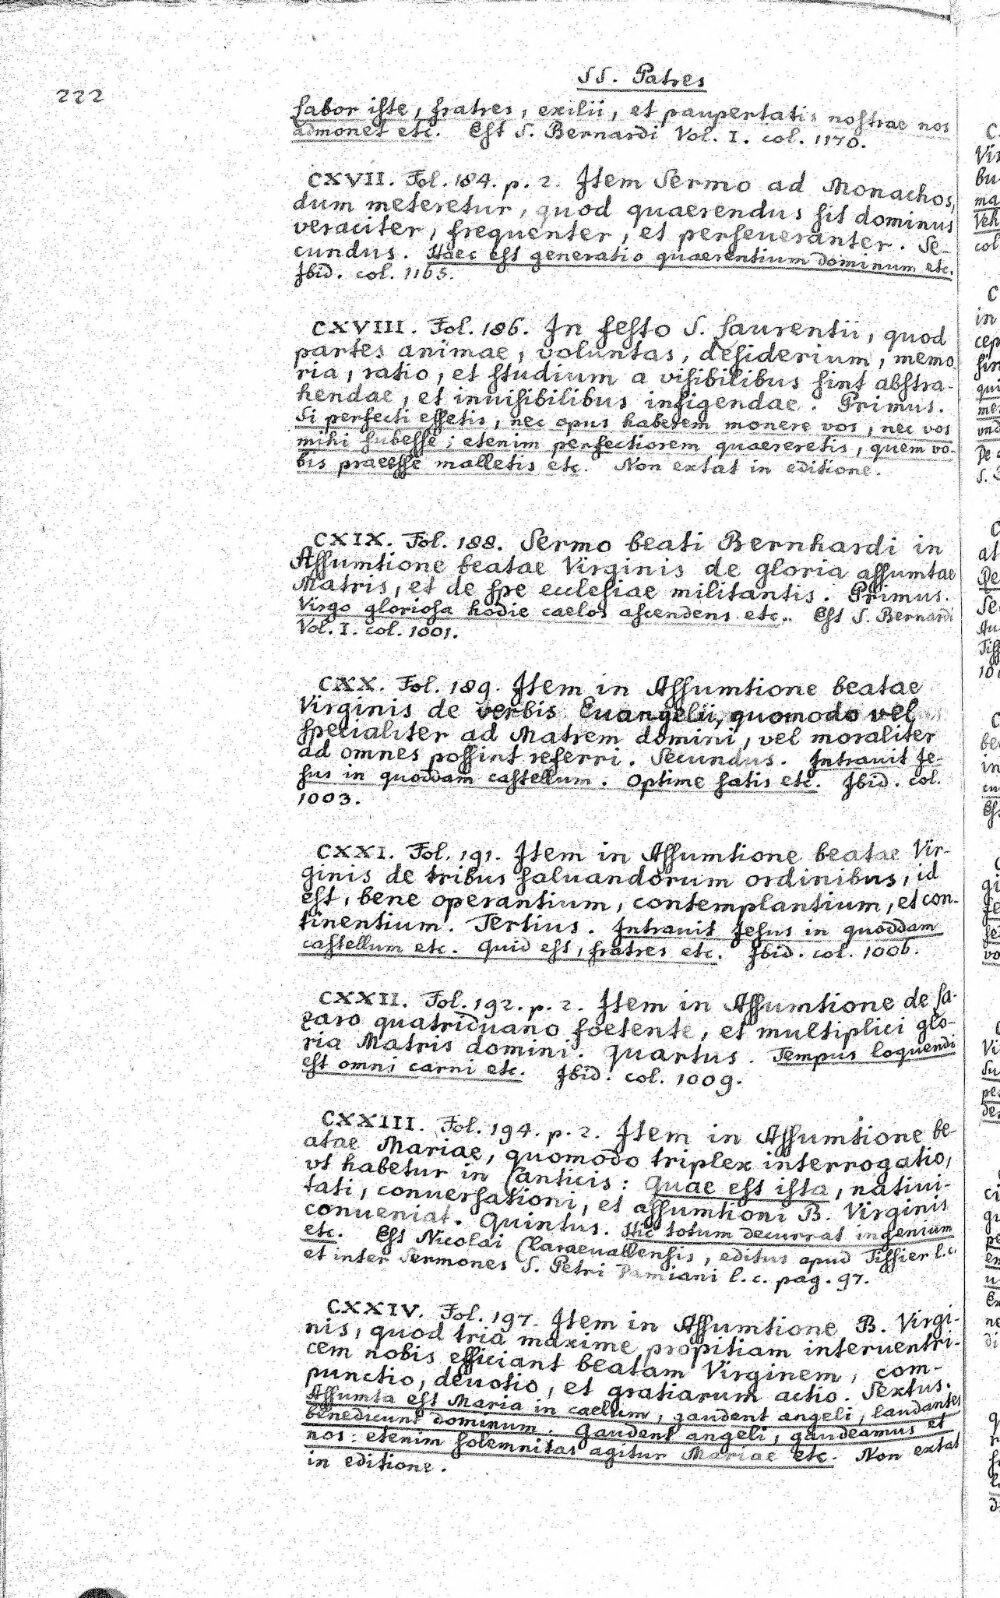 SS. Patres
222
Labor iste, fratres, exilii, et paupertatis nostrae nos
admonet etc. Est S. Bernardi Vol. I. col. 1170.
CXVII. Fol. 184. p. 2. Item Sermo ad Monachos,
dum meteretur, quod quaerendus sit dominus
veraciter, frequenter, et perseueranter. Se-
cundus. Haec est generatio quaerentium dominum etc.
Ibid. col. 1165.
CXVIII. Fol. 186. In festo S. Laurentii, quod
partes animae, voluntas, desiderium, memo
ria, ratio, et studium a visibilibus sint abstra-
hendae, et inuisibilibus infigendae. Primus.
Si perfecti essetis, nec opus haberem monere vos, nec vos
mihi subesse; etenim perfectiorem quaereretis, quem vo-
bis praeesse malletis etc. Non extat in editione.
CXIX. Fol. 188. Sermo beati Bernhardi in
Assumtione beatae Virginis de gloria assumtae
Matris, et de spe ecclesiae militantis. Primus.
Virgo gloriosa hodie caelos ascendens etc. Est S. Bernardi
Vol. I. col. 1001.
CXX. Fol. 189. Item in Assumtione beatae
Virginis de verbis Euangelii, quomodo vel
specialiter ad Matrem domini, vel moraliter
ad omnes possint referri. Secundus. Intrauit Je-
sus in quoddam castellum. Optime satis etc. Ibid. col.
1003.
CXXI. Fol. 191. Item in Assumtione beatae Vir-
ginis de tribus saluandorum ordinibus, id
est, bene operantium, contemplantium, et con-
tinentium. Tertius. Intrauit Jesus in quoddam
castellum etc. Quid est, fratres etc. Ibid. col. 1006.
CXXII. Fol. 192. p. 2. Item in Assumtione de La-
zaro quatriduano foetente, et multiplici glo-
ria Matris domini. Quartus. Tempus loquendi
est omni carni etc. Ibid. col. 1009.
CXXIII. Fol. 194. p. 2. Item in Assumtione be-
atae Mariae, quomodo triplex interrogatio,
vt habetur in Canticis: Quae est ista, natiui-
tati, conuersationi, et assumtioni B. Virginis
conueniat. Quintus. Hic totum decurrat ingenium
etc. Est Nicolai Claraeuallensis, editus apud Tissier l.c.
et inter Sermones S. Petri Damiani l. c. pag. 97.
CXXIV. Fol. 197. Item in Assumtione B. Virgi-
nis, quod tria maxime propitiam interuentri-
cem nobis efficiant beatam Virginem, com-
punctio, deuotio, et gratiarum actio. Sextus.
Assumta est Maria in caelum, gaudent angeli, laudantes
benedicunt dominum. Gaudent angeli, gaudeamus et
nos: etenim solemnitas agitur Mariae etc. Non extat
in editione.